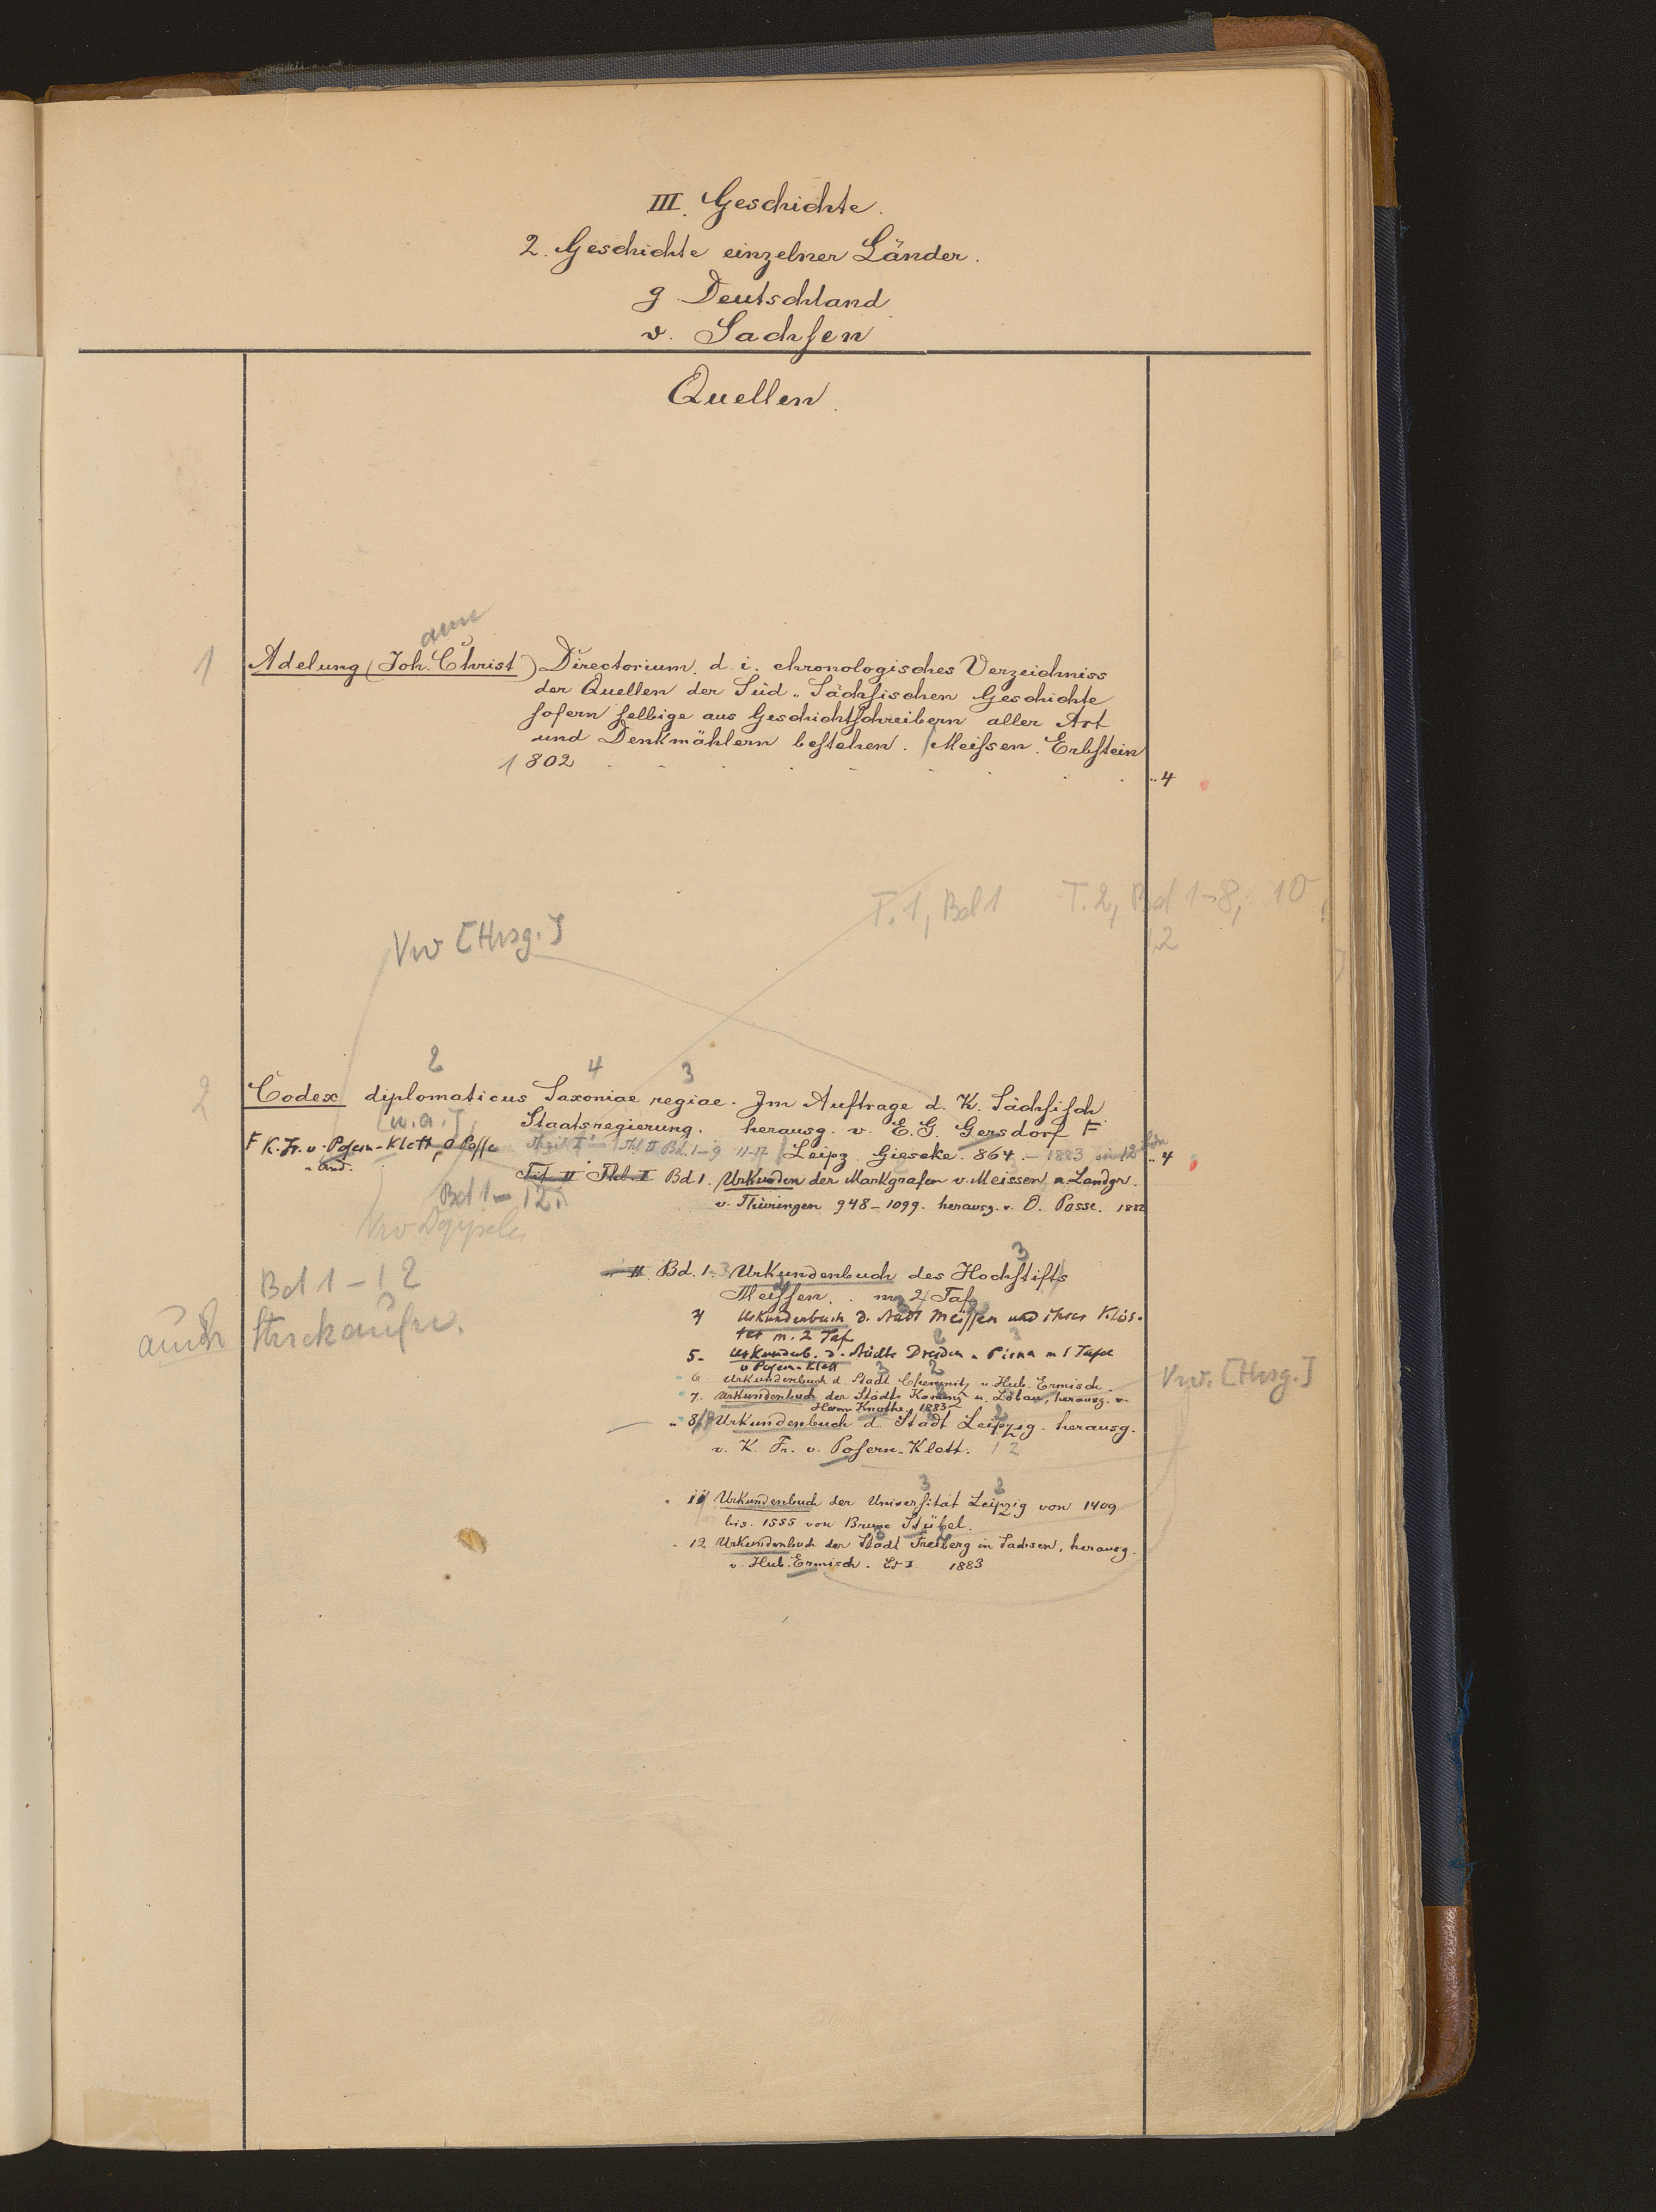 III. Geschichte.
2. Geschichte einzelner Länder.
g. Deutschland
v. Sachsen
Quellen.
ann
1 Adelung (Joh. Christ) Directorium, d. i. chronologisches Verzeichniss
der Quellen der Süd-Sächsischen Geschichte
sofern selbige aus Geschichtschreibern aller Art
und Denkmählern bestehen. Meissen. Erbstein
1802 .. 4
T. 1, Bd 1 T. 2, Bd 1-8, 10
12
Vw [Hrsg.]
2 4 3
2 Codex diplomaticus Saxoniae regiae. Im Auftrage d. K. Sächsisch
[u. a.]
Staatsregierung. herausg. v. E. G. Gersdorf F
F K. Fr. v. Posern-Klett, O Posse Thl II Bd. 1-9 11-12 Leipz. Gieseke. 864. - 1883 in 12 .. 4
u. And.
Thl. I Bd 1. Urkunden der Markgrafen v. Meissen u. Landgr.
Bd 1 - 12
v. Thüringen 948-1099. herausg. v. O. Posse. 1882
3
II. Bd. 1-3 Urkundenbuch des Hochstifts
Bd 1 - 12
Meissen. m 2 Taf
auch
4 Urkundenbuch d. Stadt Meissen und ihrer Klös-
ter m. 2 Taf
5. Urkundenb. d. Städte Dresden u. Pirna m 1 Tafel
v Posern-Klett
Vw. [Hrsg.]
6 Urkundenbuch d. Stadt Chemnitz v. Hub. Ermisch.
7. Urkundenbuch der Städte Kamenz u. Löbau, herausg. v.
Herm Knothe. 1883
" 8/9 Urkundenbuch d. Stadt Leipzig. herausg.
v. K. Fr. v. Posern-Klett. 1 2
3 2
" 11 Urkundenbuch der Universität Leipzig von 1409
bis. 1555 von Bruno Stübel.
" 12 Urkundenbuch der Stadt Freiberg in Sachsen, herausg.
v. Hub. Ermisch. Bd I 1883